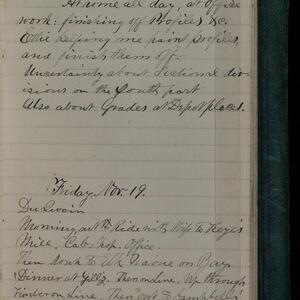 At home all day, at office
work: finishing off Profiles &c.
helping me paint profiles,
and finish them off.
Uncertainty about Sectional div-
isions on the South part
Also about Grades at Depot places.
Friday, Nov. 19.
Morning, out to Ride with Wife to Keyes
Mill, Cab. Shop. Office.
Then down to on Cars
Dinner at Then on Line. Up through
Timber on Line. Then out to